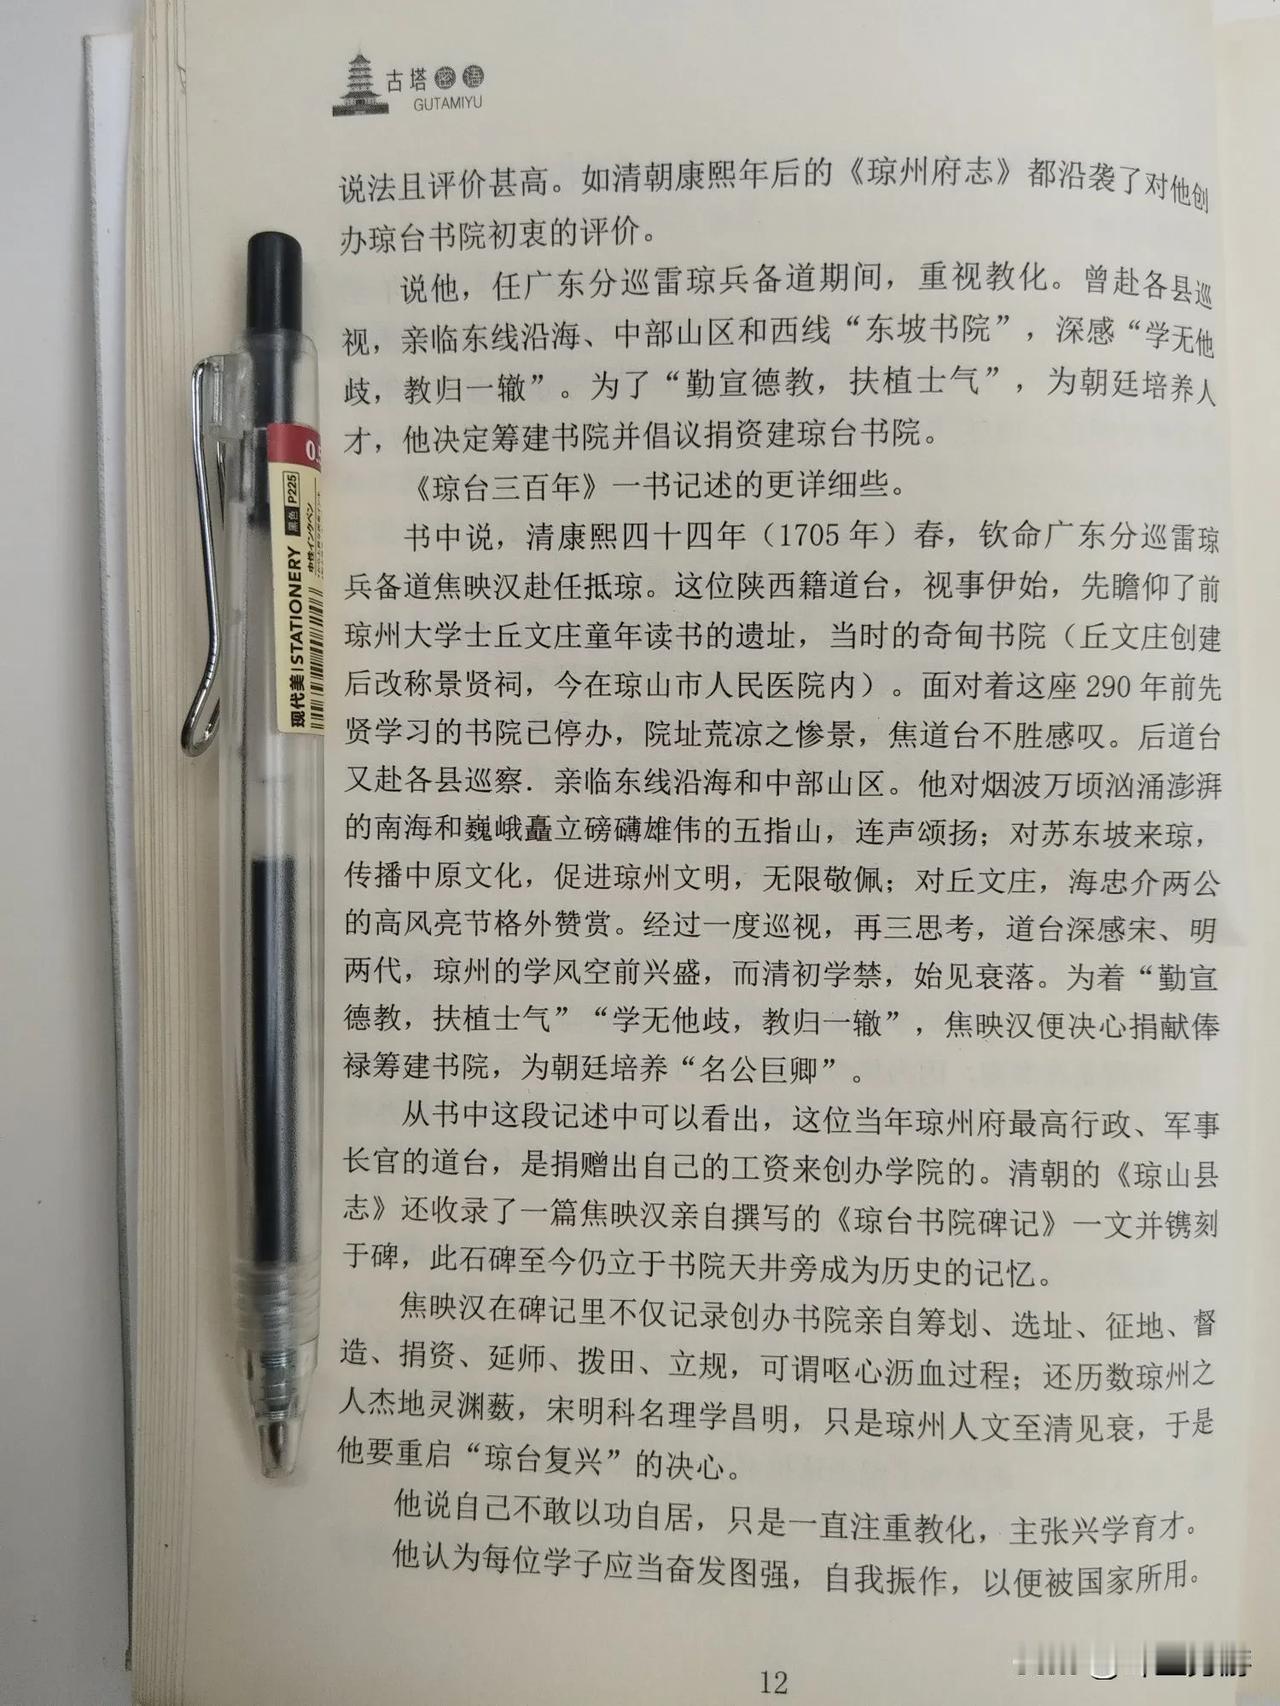 古塔密语
GUTAMIYU
说法且评价甚高。如清朝康熙年后的《琼州府志》都沿袭了对他创
办琼台书院初衷的评价。
说他，任广东分巡雷琼兵备道期间，重视教化。曾赴各县巡
视，亲临东线沿海、中部山区和西线“东坡书院”，深感“学无他
歧，教归一辙”。为了“勤宣德教，扶植士气”，为朝廷培养人
才，他决定筹建书院并倡议捐资建琼台书院。
《琼台三百年》一书记述的更详细些。
书中说，清康熙四十四年（1705年）春，钦命广东分巡雷琼
兵备道焦映汉赴任抵琼。这位陕西籍道台，视事伊始，先瞻仰了前
琼州大学士丘文庄童年读书的遗址，当时的奇甸书院（丘文庄创建
后改称景贤祠，今在琼山市人民医院内）。面对着这座290年前先
贤学习的书院已停办，院址荒凉之惨景，焦道台不胜感叹。后道台
又赴各县巡察．亲临东线沿海和中部山区。他对烟波万顷汹涌澎湃
的南海和巍峨矗立磅礴雄伟的五指山，连声颂扬；对苏东坡来琼，
传播中原文化，促进琼州文明，无限敬佩；对丘文庄，海忠介两公
的高风亮节格外赞赏。经过一度巡视，再三思考，道台深感宋、明
两代，琼州的学风空前兴盛，而清初学禁，始见衰落。为着“勤宣
德教，扶植士气”“学无他歧，教归一辙”，焦映汉便决心捐献俸
禄筹建书院，为朝廷培养“名公巨卿”。
从书中这段记述中可以看出，这位当年琼州府最高行政、军事
长官的道台，是捐赠出自己的工资来创办学院的。清朝的《琼山县
志》还收录了一篇焦映汉亲自撰写的《琼台书院碑记》一文并镌刻
于碑，此石碑至今仍立于书院天井旁成为历史的记忆。
焦映汉在碑记里不仅记录创办书院亲自筹划、选址、征地、督
造、捐资、延师、拨田、立规，可谓呕心沥血过程；还历数琼州之
人杰地灵渊薮，宋明科名理学昌明，只是琼州人文至清见衰，于是
他要重启“琼台复兴”的决心。
他说自己不敢以功自居，只是一直注重教化，主张兴学育才。
他认为每位学子应当奋发图强，自我振作，以便被国家所用。
12
现代美|STATIONERY
黑色 P225
中性·インクペン